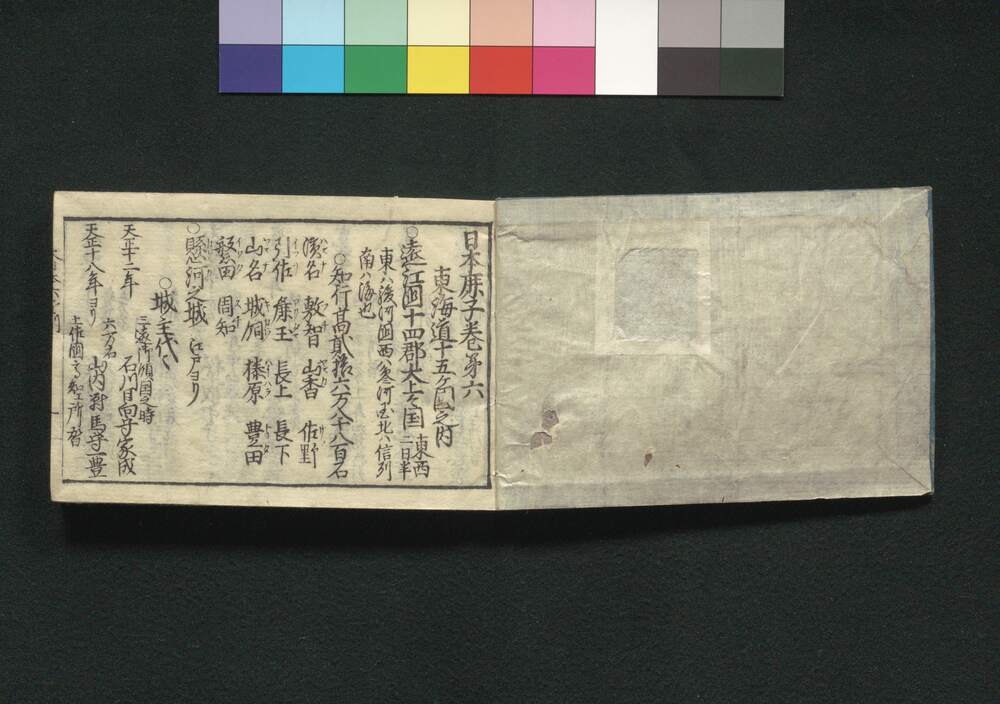 日本鹿子巻第六
東海道十五ヶ国之内
○遠江国十四郡大上々国 東西二日半
東ハ駿河国西ハ参河国北ハ信列
南ハ海也
○知行高貳拾六万八千八百石
濱名 敷智 山香 佐野
引佐 麁玉 長上 長下
山名 城飼 榛原 豊田
磐田 周知
○懸河之城 江戸ヨリ
○城主代々
三遠御領国之時
天正十二年 石川日向守家成
天正十八年ヨリ 六万石 山内對馬守一豊
土佐国